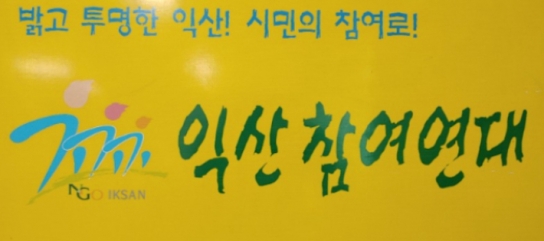 밝고 투명한 익산! 시민의 참여로!
익산참여연대
NGO IKSAN